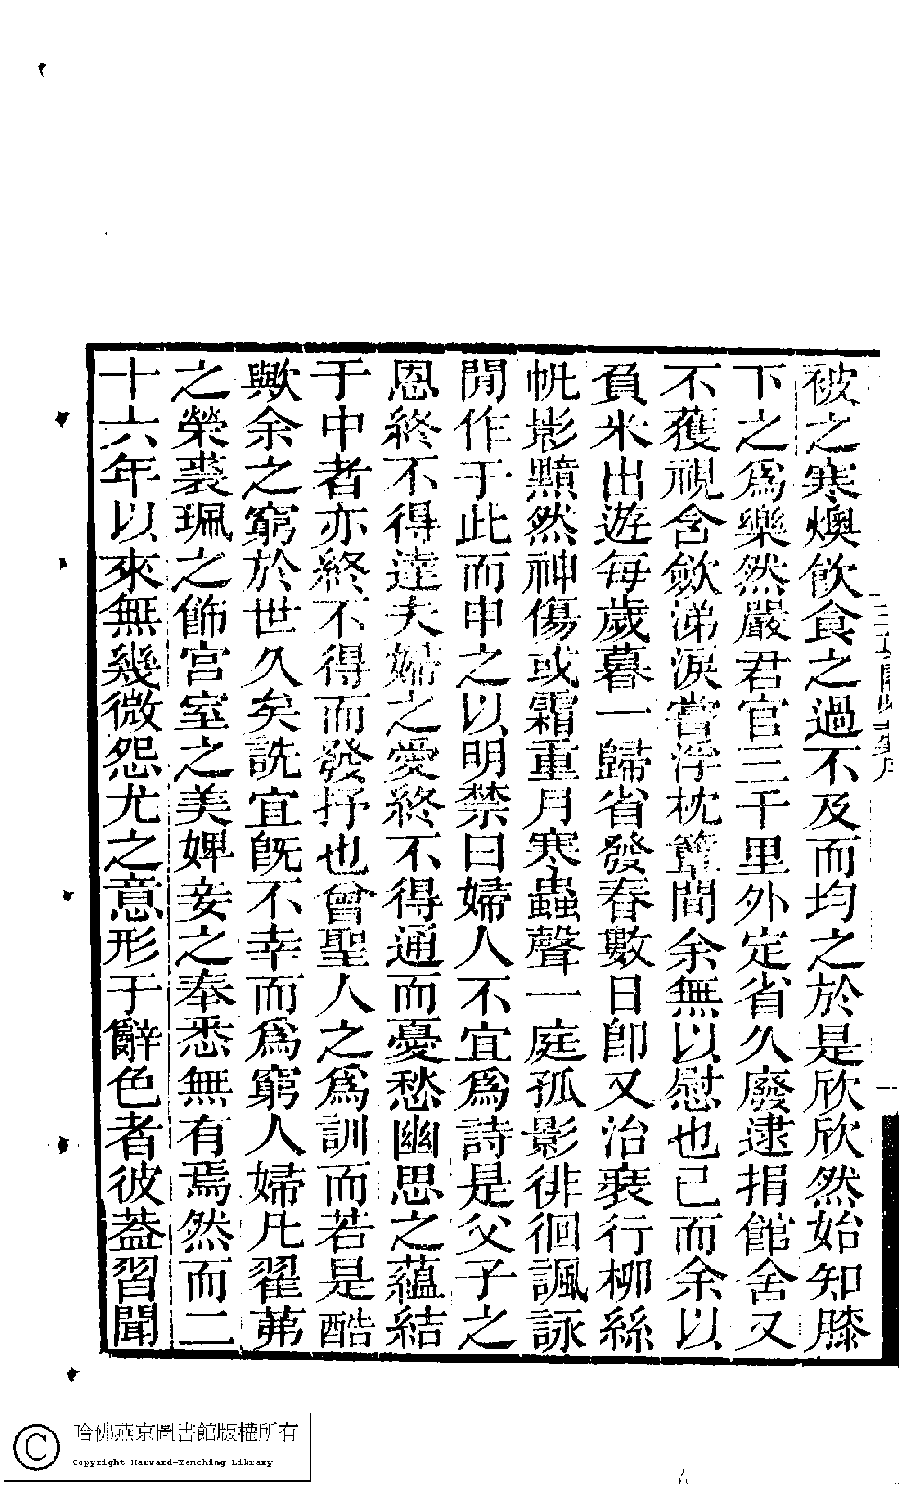 被之寒燠飲食之過不及而均之於是欣欣然始知膝
下之為樂然嚴君官三千里外定省久廢逮捐館舍又
不獲視含斂涕淚嘗浮枕簟間余無以慰也已而余以
負米出遊每歲暮一歸省發春數日即又治裝行柳絲
帆影黯然神傷或霜重月寒蟲聲一庭孤影徘徊諷詠
閒作于此而申之以明禁曰婦人不宜為詩是父子之
恩終不得達夫婦之愛終不得通而憂愁幽思之蘊結
于中者亦終不得而發抒也曾聖人之為訓而若是酷
歟余之窮於世久矣詵宜既不幸而為窮人婦凡翟茀
之榮裘珮之飾宮室之美婢妾之奉悉無有焉然而二
十六年以來無幾微怨尤之意形于辭色者彼蓋習聞
哈佛燕京圖書館版權所有
Copyright Harvard-Yenching Library